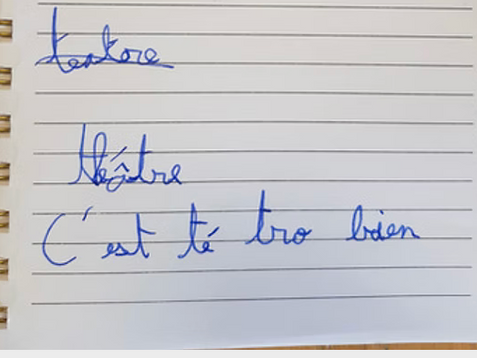 teatore
théâtre
C'est té tro bien